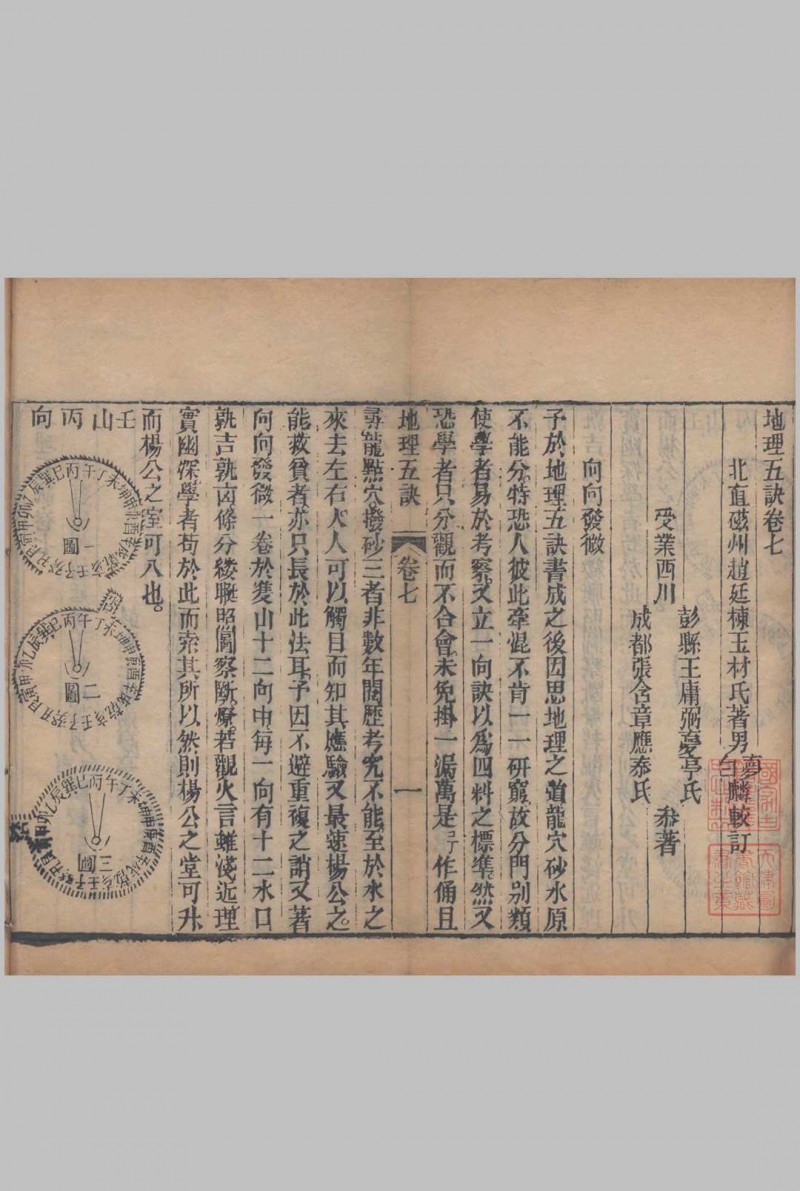 地理五訣卷七
北直磁州趙廷棟玉材氏著男夢白麟較訂
彭縣王庸弼夔亭氏
受業西川
叅著
成都張含章應泰氏
向向發微
予於地理五訣書成之後因思地理之道龍穴砂水原
不能分特恐人彼此牽混不肯一一研窮故分門别類
使學者易於考察又立一向訣以為四料之標準然又
恐學者只分觀而不合會未免掛一漏萬是
作俑且
地理五訣
卷七
一
尋龍點穴撥砂三者非數年閱歷考究不能至於水之
來去左右人人可以觸目而知其應驗又最速楊公之
能救貧者亦只長於此法耳予因不避重複之誚又著
向向發微一卷於雙山十二向中每一向有十二水口
孰吉孰凶條分縷晰昭關察斷燎若觀火言雖淺近理
實幽深學者苟於此而索其所以然則楊公之堂可升
而楊公之室可入也
壬山丙向
一圖
二圖
三圖